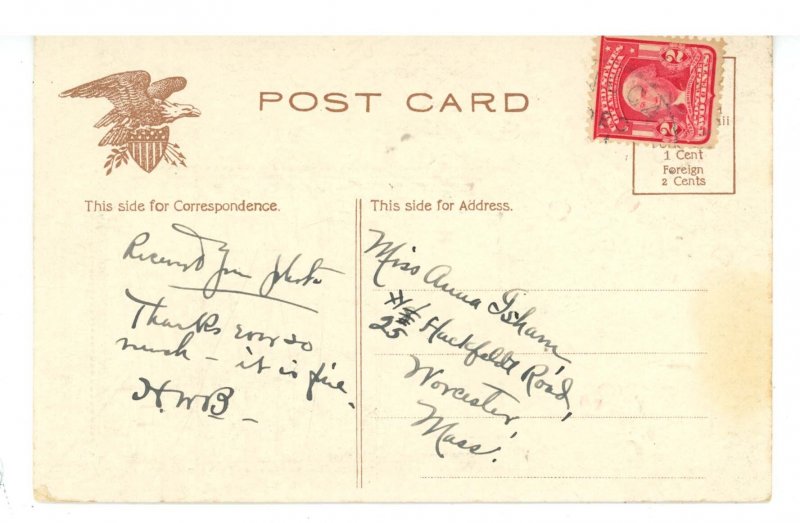 POST CARD
UNITED STATES
2 2
1 Cent
Foreign
2 Cents
This side for Correspondence.
This side for Address.
Received Your photo
Thanks ever so
much - it is fine.
H.W.B -
Miss Anna Isham,
25 Hackfeldt Road,
Worcester,
Mass.